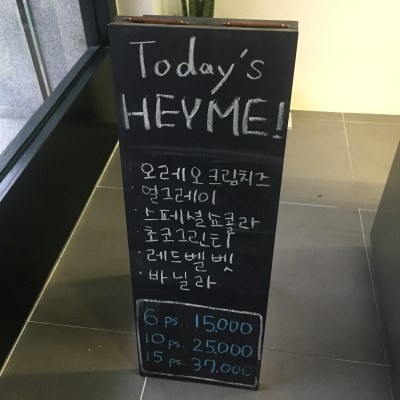 Today's
HEYME!
오레오크림치즈
얼그레이
·스페셜쇼콜라
·초코그린티
·레드벨벳
·바닐라
6 ps. 15.000
10 ps. 25.000
15 ps. 37.000